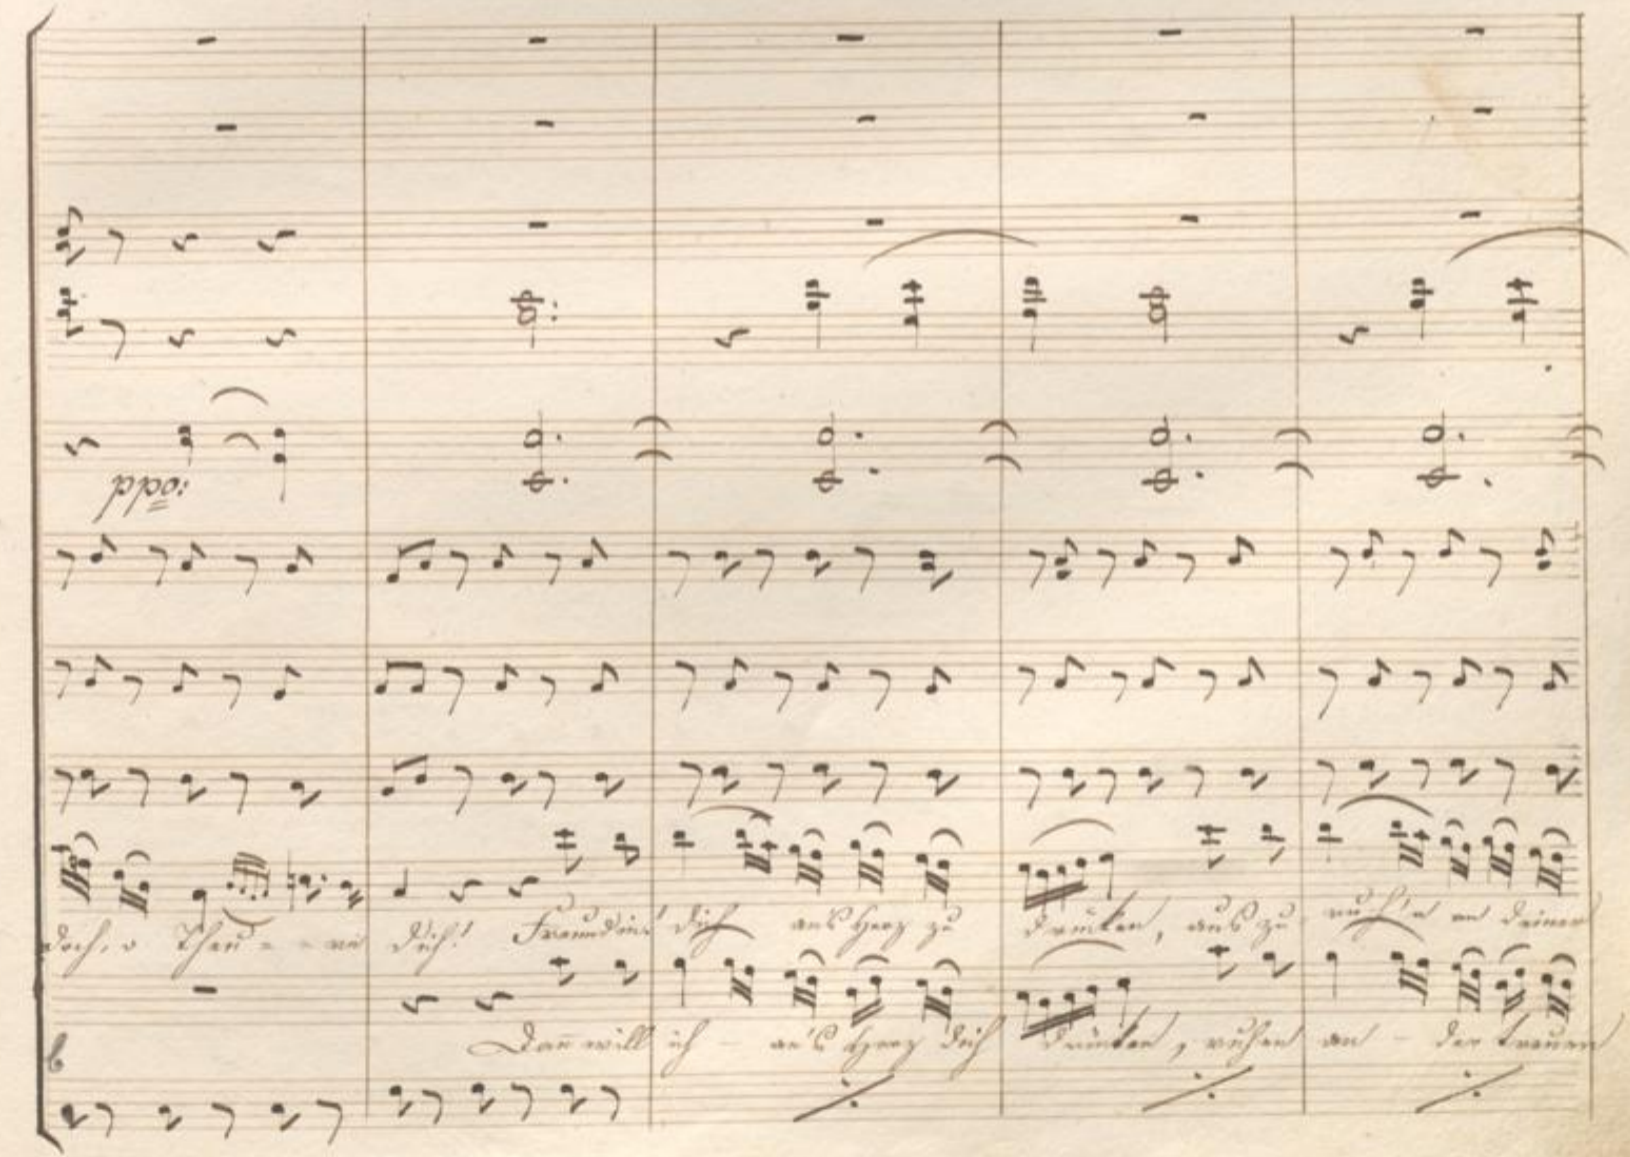 ppo:
doch, o Theu - - re dich! Freundin! dich ans Herz zu drücken, aus zu ruh'n an deiner
Dan̄ will ich – an's Herz dich drücken, ruhen an – der treuen